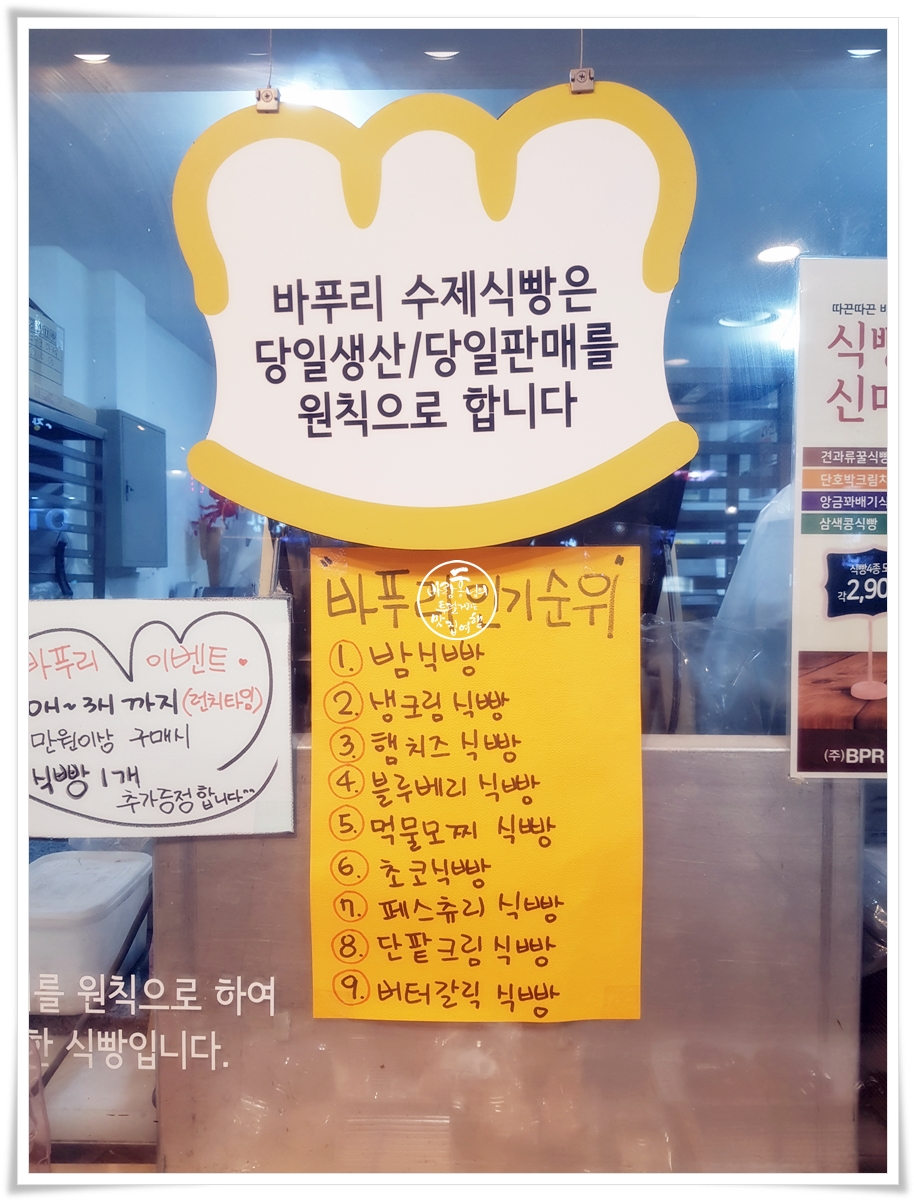 바푸리 수제식빵은
당일생산/당일판매를
원칙으로 합니다
"바푸리 인기순위"
1. 밤식빵
2. 생크림 식빵
3. 햄치즈 식빵
4. 블루베리 식빵
5. 먹물모찌 식빵
6. 초코식빵
7. 페스츄리 식빵
8. 단팥크림식빵
9. 버터갈릭 식빵
바푸리 이벤트
까지(런치타임)
만원이상 구매시
식빵 1개
추가증정합니다^^
를 원칙으로 하여
한 식빵입니다.
따끈따끈
신
견과류꿀식빵
단호박크림치
앙금꽈배기식
삼색콩식빵
식빵4종
각2,90
(주)BPR